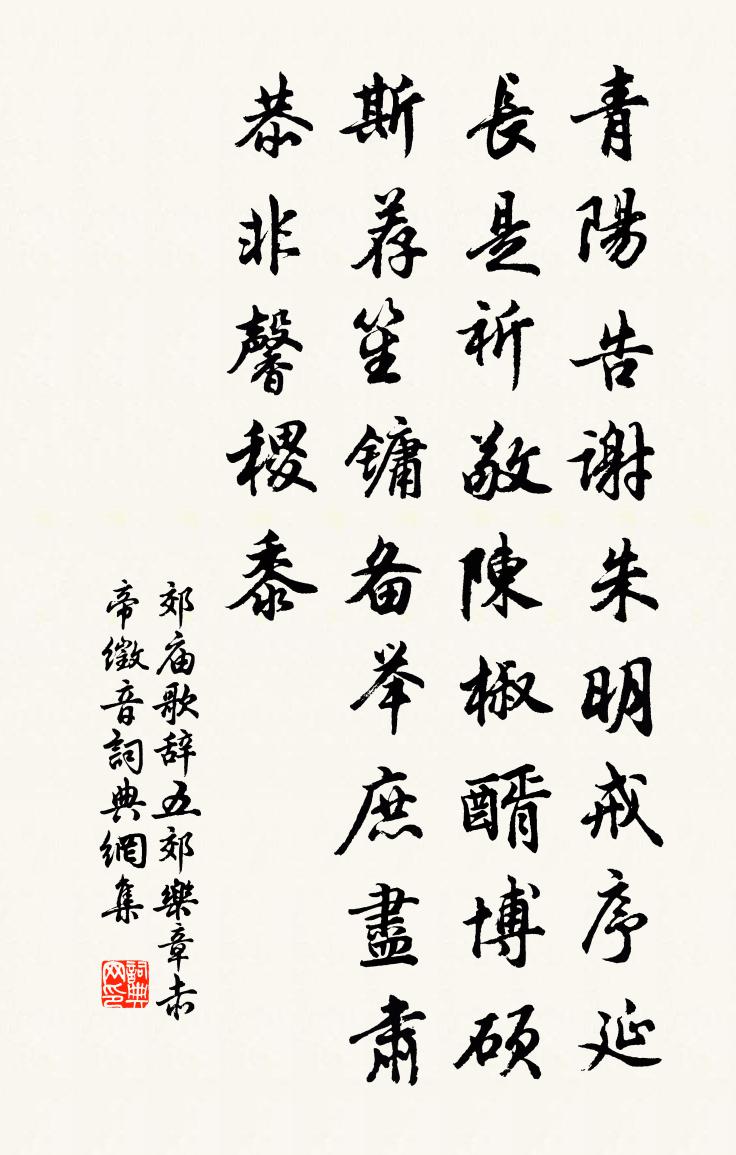 青陽告谢朱明戒序延
長是祈敬陳椒醑博硕
斯荐笙鏞备举庶盡肃
恭非馨稷黍
郊庙歌辞五郊樂章赤
帝徵音詞典網集
詞典
网印